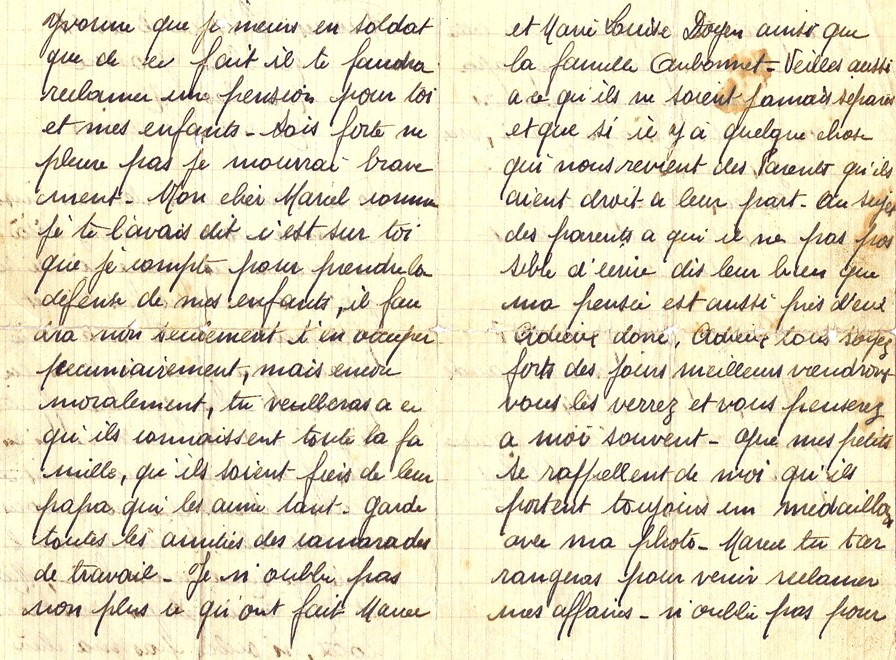 Yvonne que je meurs en soldat
que de ce fait il te faudra
reclamer une pension pour toi
et mes enfants - Sois forte ne
pleure pas je mourrai brave
ment - Mon cher Marcel comme
je te l'avais dit c'est sur toi
que je compte pour prendre la
défense de mes enfants, il fau
dra non seulement t'en occuper
pecuniairement, mais encore
moralement, tu veilleras a ce
qu'ils connaissent toute la fa
mille, qu'ils soient fiers de leur
papa qui les aime tant - Garde
toutes les amitiés des camarades
de travail - Je n'oublie pas
non plus ce qu'ont fait Marcel
et Marie Louise Doyen ainsi que
la famille Aubonnet - Veilles aussi
a ce qu'ils ne soient jamais séparés
et que si il y a quelque chose
qui nous revient des Parents qu'ils
aient droit a leur part - Au sujet
des parents a qui il ne pas pos
sible d'écrire dis leur bien que
ma pensée est aussi près d'eux
Adieux donc, Adieux tous soyez
forts des jours meilleurs viendront
vous les verrez et vous penserez
a moi souvent - Que mes petits
se rappellent de moi qu'ils
portent toujours un medaillon
avec ma photo - Marcel tu t'ar
rangeras pour venir reclamer
mes affaires - n'oublie pas pour